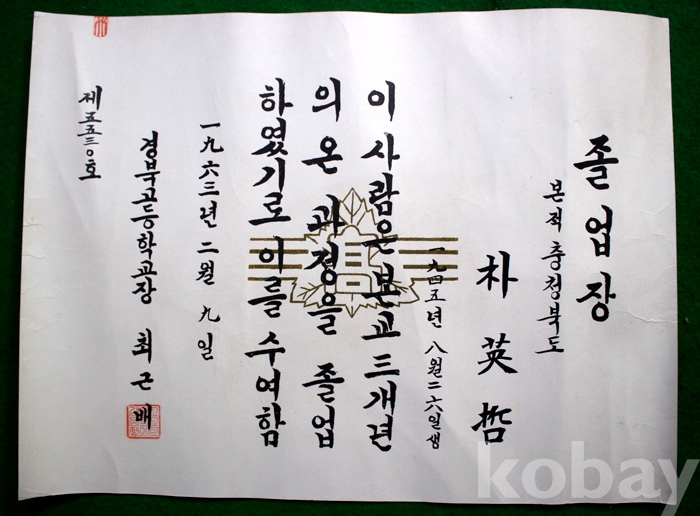 졸업장
본적 충청북도
朴英哲
一九四五년 八월二六일생
이 사람은 본교 三개년
의 온 과정을 졸업
하였기로 이를 수여함
一九六三년 二월 九일
경북고등학교장 최근배
제五五三〇호
kobay